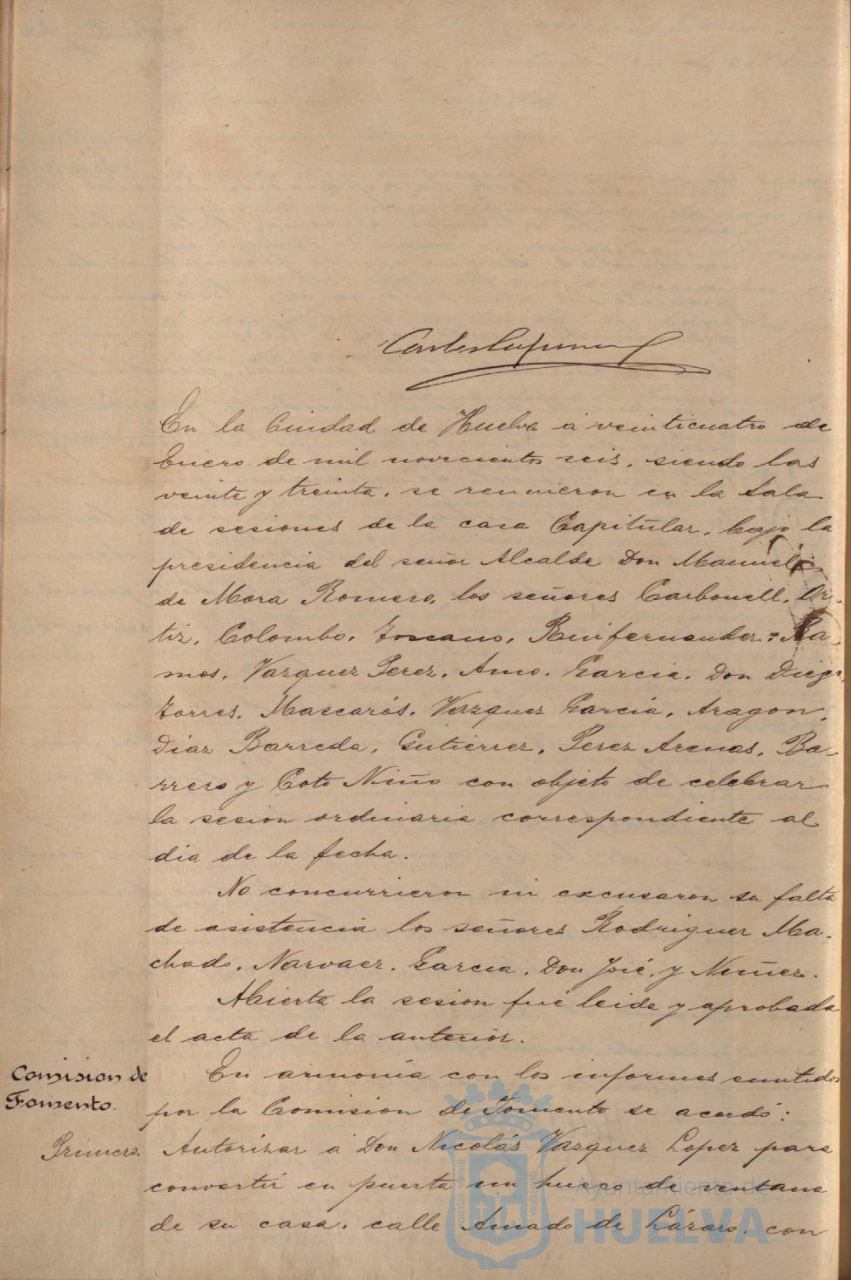 En la Ciudad de Huelva á veinticuatro de
Enero de mil novecientos seis, siendo las
veinte y treinta, se reunieron en la Sala
de sesiones de la casa Capitular, bajo la
presidencia del señor Alcalde Don Manuel
de Mora Romero, los señores Carbonell, Or-
tiz, Colombo, Toscano, Ruifernandez, Ra-
mos, Vazquez Perez, Amo, Garcia, Don Diego,
Torres, Mascarós, Vazquez Garcia, Aragon,
Diaz Barreda, Gutierrez, Perez Arenas, Ba-
rrero y Coto Niño con objeto de celebrar
la sesion ordinaria correspondiente al
dia de la fecha.
No concurrieron ni excusaron su falta
de asistencia los señores Rodriguez Ma-
chado, Narvaez, Garcia, Don José, y Nuñez.
Abierta la sesion fué leida y aprobada
el acta de la anterior.
Comision de
Fomento.
En armonía con los informes emitidos
por la Comision de Fomento se acordó:
Primero. Autorizar á Don Nicolás Vazquez Lopez para
convertir en puerta un hueco de ventana
de su casa, calle Amado de Lázaro, con
Ayuntamiento de
HUELVA